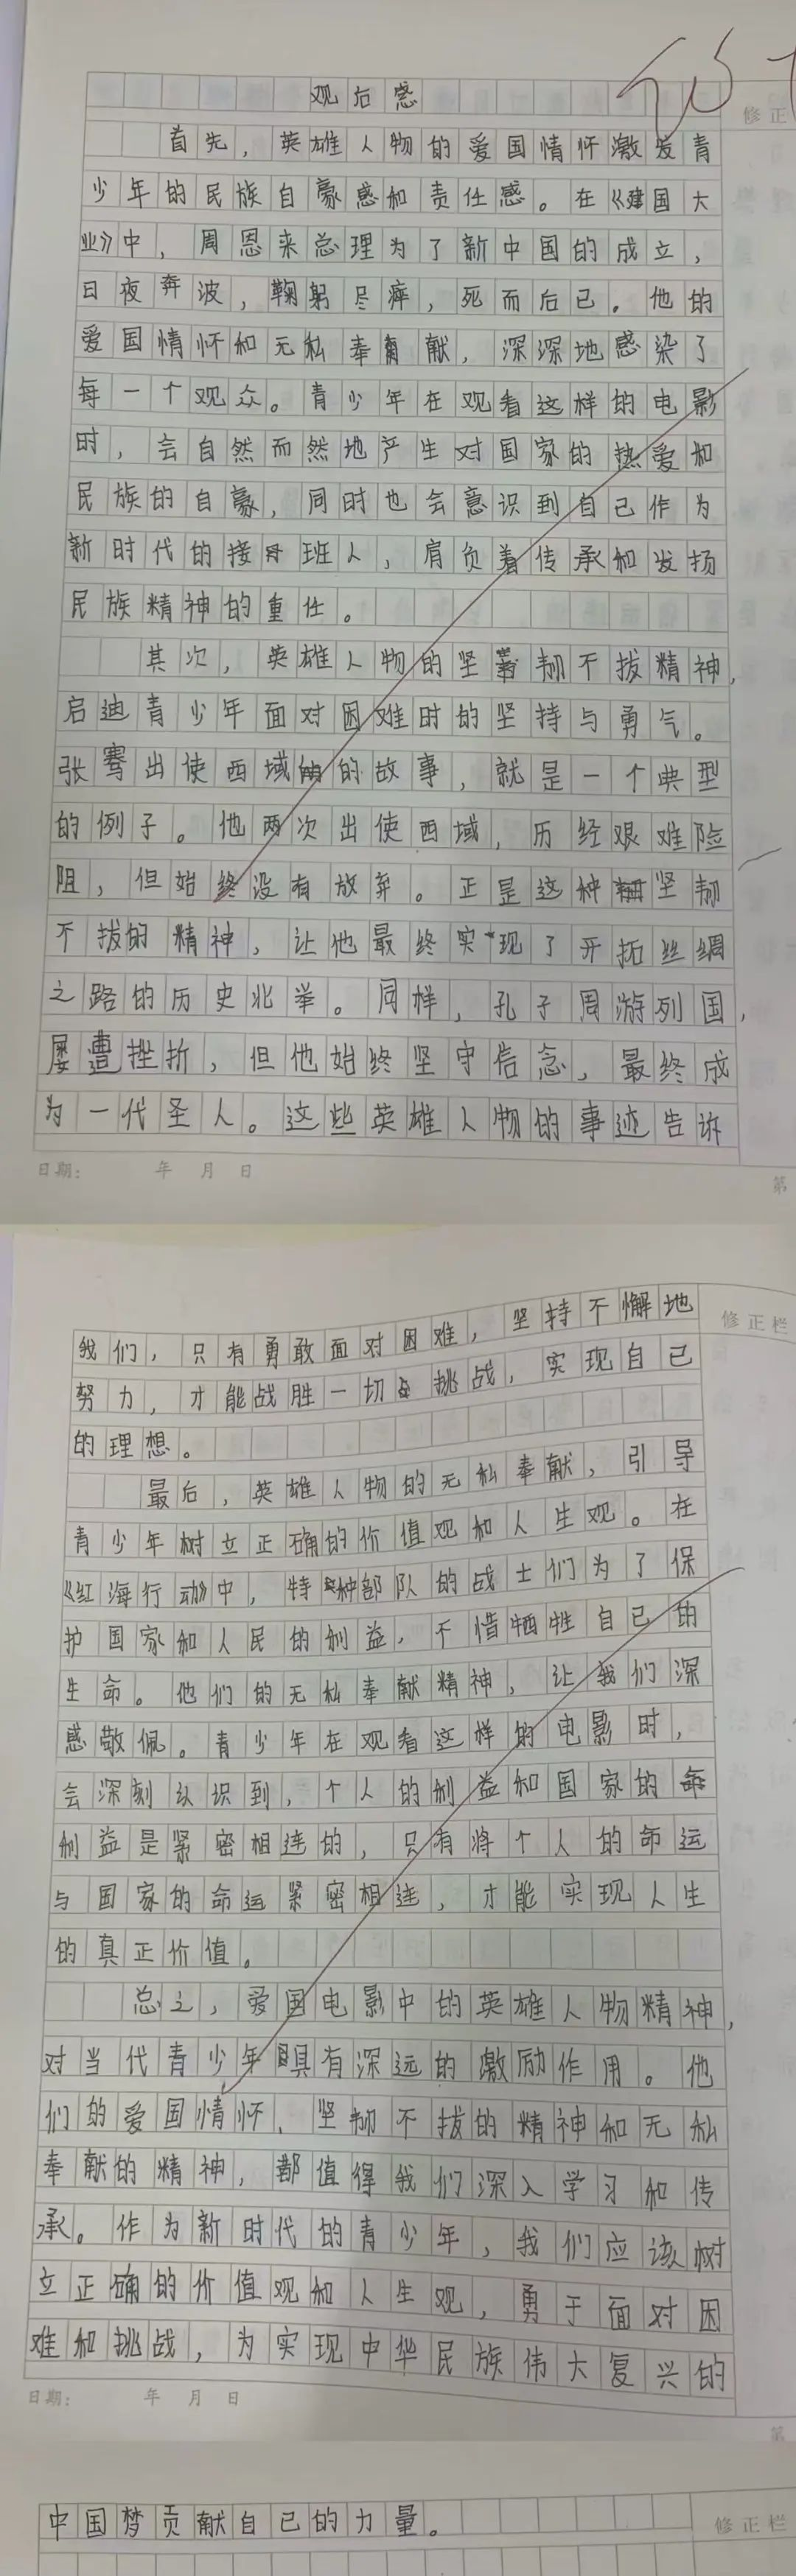 观后感
修正
首先，英雄人物的爱国情怀激发青
少年的民族自豪感和责任感。在《建国大
业》中，周恩来总理为了新中国的成立，
日夜奔波，鞠躬尽瘁，死而后已。他的
爱国情怀和无私奉献，深深地感染了
每一个观众。青少年在观看这样的电影
时，会自然而然地产生对国家的热爱和
民族的自豪，同时也会意识到自己作为
新时代的接班人，肩负着传承和发扬
民族精神的重任。
其次，英雄人物的坚韧不拔精神，
启迪青少年面对困难时的坚持与勇气。
张骞出使西域的故事，就是一个典型
的例子。他两次出使西域，历经艰难险
阻，但始终没有放弃。正是这种坚韧
不拔的精神，让他最终实现了开拓丝绸
之路的历史壮举。同样，孔子周游列国，
屡遭挫折，但他始终坚守信念，最终成
为一代圣人。这些英雄人物的事迹告诉
日期： 年 月 日
第
修正栏
我们，只有勇敢面对困难，坚持不懈地
努力，才能战胜一切挑战，实现自己
的理想。
最后，英雄人物的无私奉献，引导
青少年树立正确的价值观和人生观。在
《红海行动》中，特种部队的战士们为了保
护国家和人民的利益，不惜牺牲自己的
生命。他们的无私奉献精神，让我们深
感敬佩。青少年在观看这样的电影时，
会深刻认识到，个人的利益和国家的
利益是紧密相连的，只有将个人的命运
与国家的命运紧密相连，才能实现人生
的真正价值。
总之，爱国电影中的英雄人物精神，
对当代青少年具有深远的激励作用。他
们的爱国情怀、坚韧不拔的精神和无私
奉献的精神，都值得我们深入学习和传
承。作为新时代的青少年，我们应该树
立正确的价值观和人生观，勇于面对困
难和挑战，为实现中华民族伟大复兴的
日期： 年 月 日
第
中国梦贡献自己的力量。
修正栏